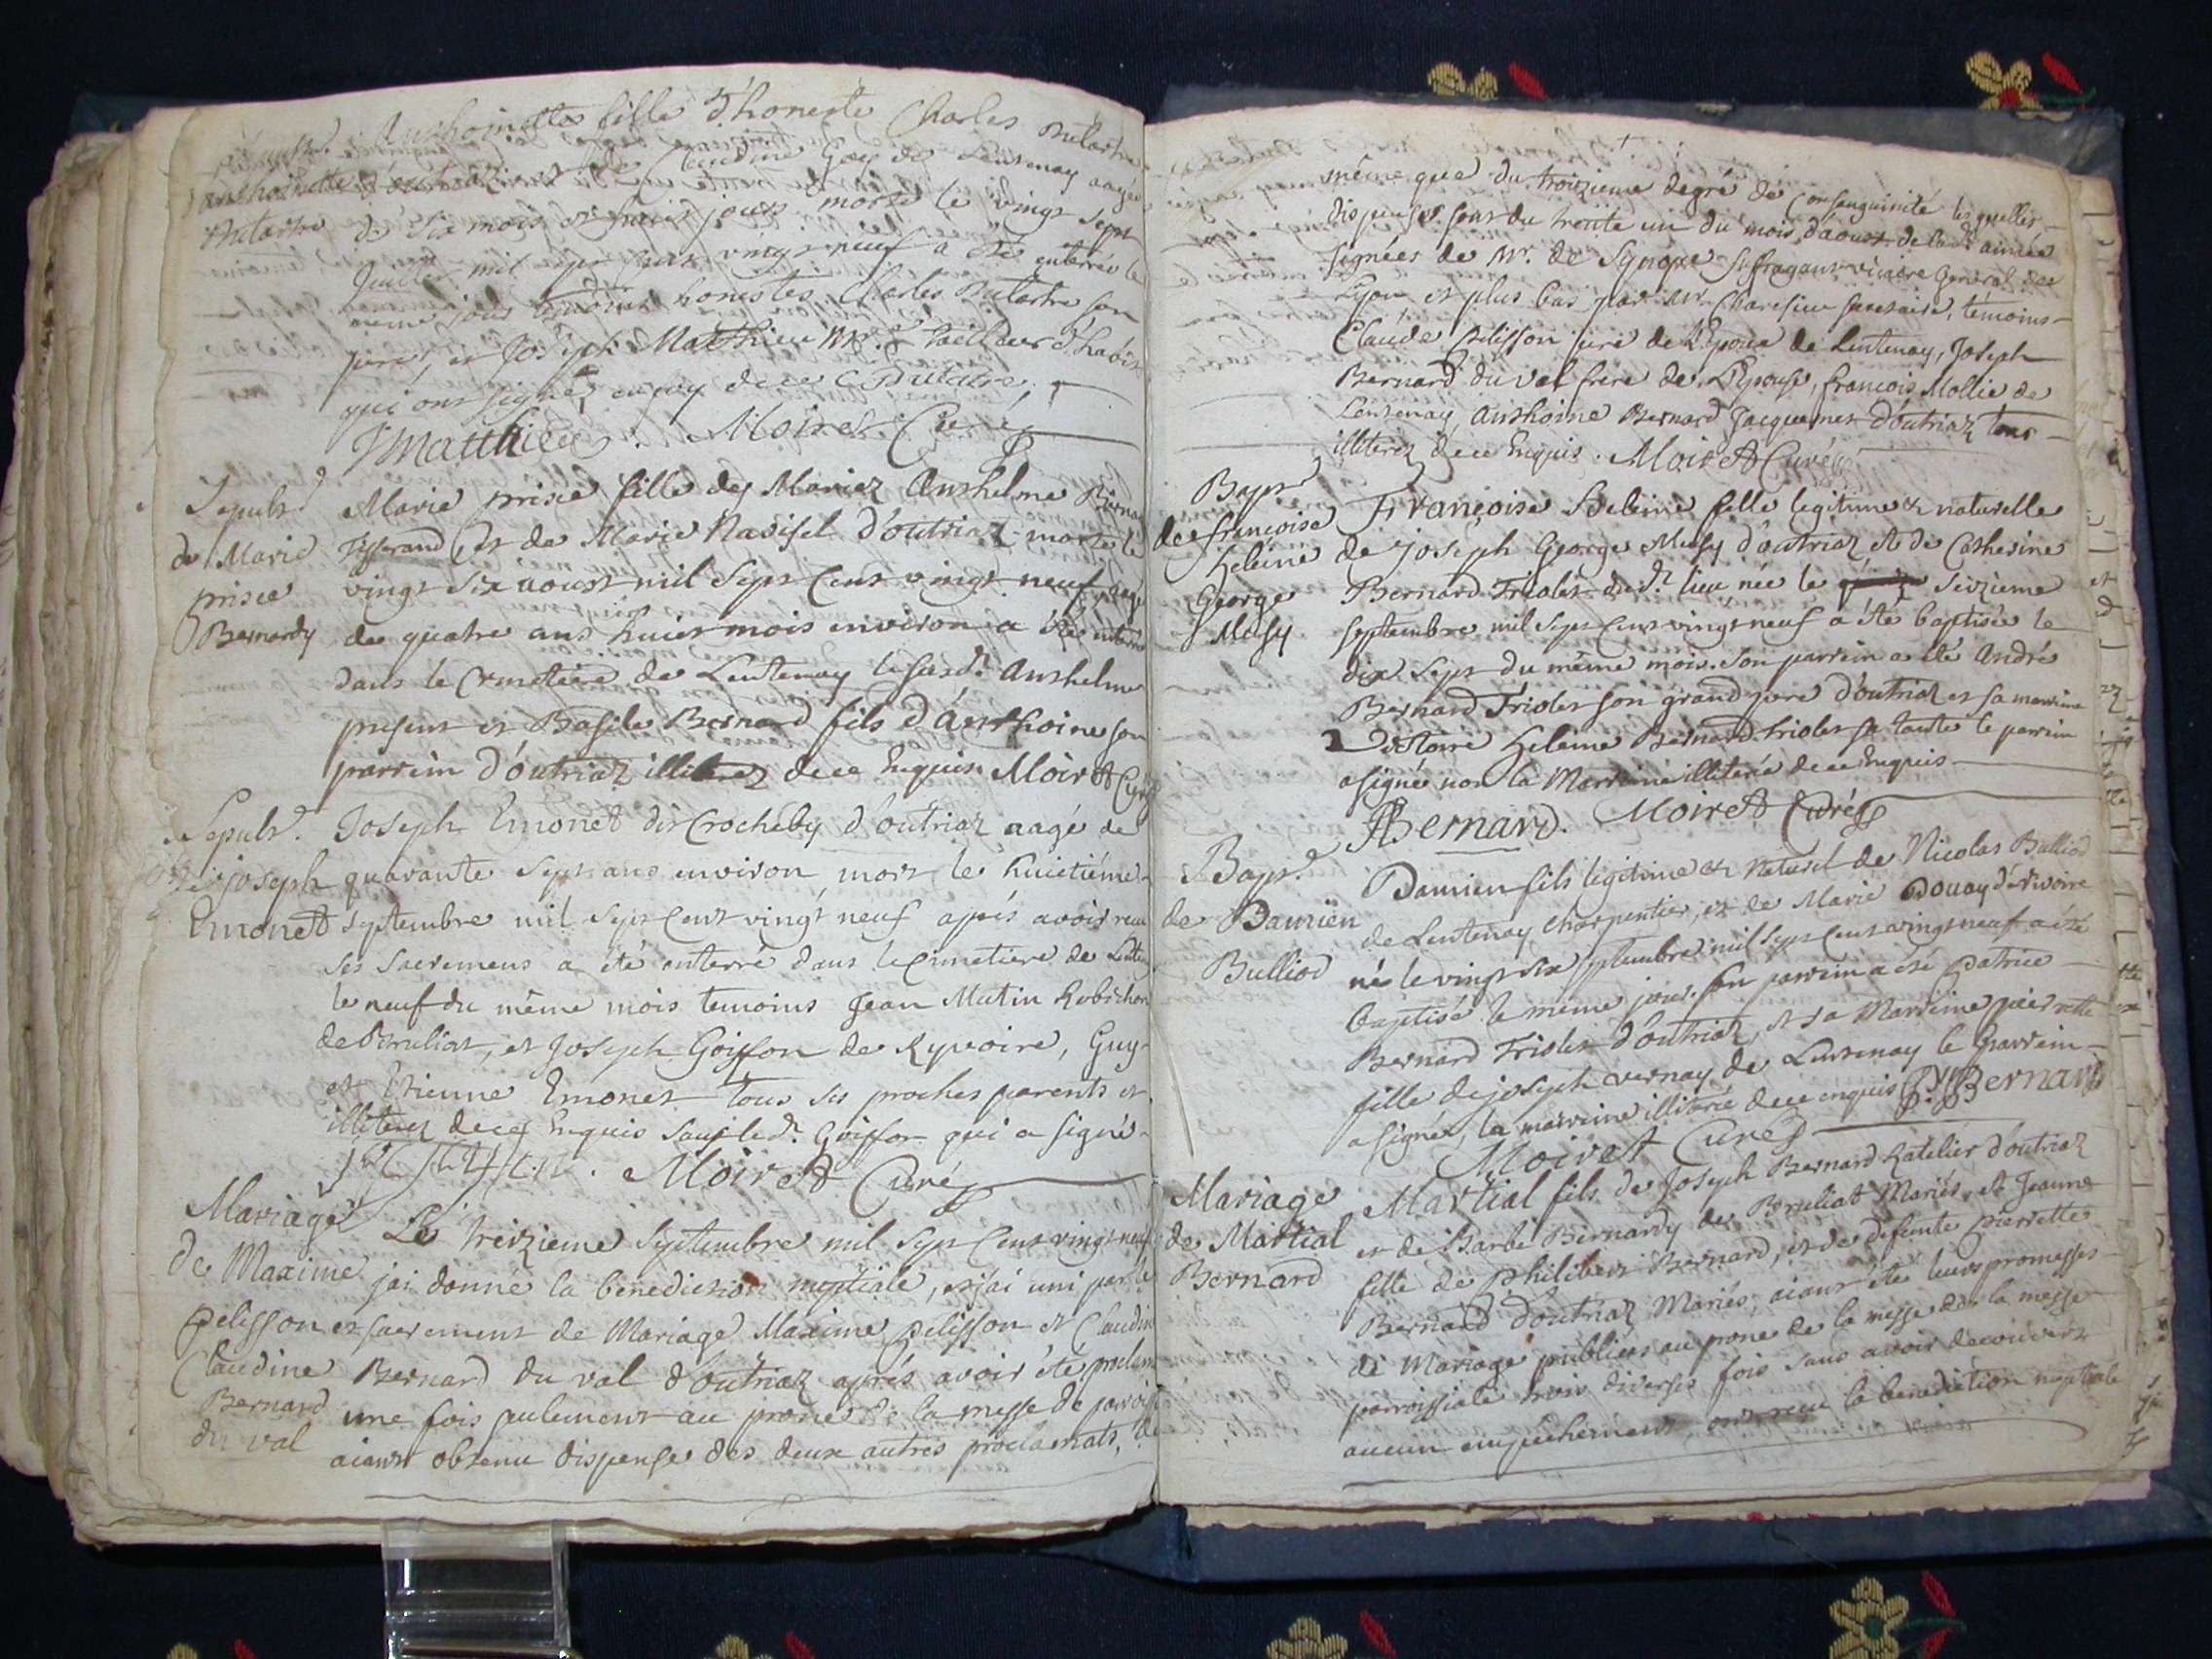 Sepult.
Anthoinette
Anthoinette fille d'honeste Charles
d'outriaz et de Claudine Goy de Lentenay aagée
de six mois et huit jours morte le vingt sept
Juillet mil sept cent vingt neuf a été enterrée le
même jour témoins honestes Charles son
pere, et Joseph Matthieu Mre. tailleur d'habits
qui ont signés enquis de ce
JMatthieu. Moiret Curé
Sepult.
de Marie
prisce
Bernardy
Marie prisce fille des Mariez Anthelme
Tisserand, et de Marie Navisel d'outriaz morte le
vingt six aoust mil sept cent vingt neuf, aagé
de quatre ans huict mois environ a été enterré
dans le Cymetiere de Lentenay lesusd. Anthelme
present et Basile Bernard fils d'Anthoine son
parrein d'outriaz illiterez de ce Enquis Moiret Curé
Sepult.
de joseph
Emonet
Joseph Emonet dit Crocheby d'outriaz aagé de
quarante sept ans environ, mort le huictiéme
septembre mil sept cent vingt neuf aprés avoir receu
ses sacremens a été enterré dans le Cimetiere de
le neuf du même mois temoins Jean Matin Robichon
de Bruliat, et Joseph Goiffon de Ryvoire, Guy
et Etienne Emonet tous ses proches parents et
illiterez de ce Enquis sauf led. Goiffon qui a signé
Moiret Curé
Mariage
de Maxime
pelisson et
Claudine
Bernard
du val
Le treizieme septembre mil sept cent vingt neuf
jai donné la benediction nuptiale, et jai uni par le
sacrement de Mariage Maxime pelisson et Claudine
Bernard du val d'outriaz aprés avoir été proclamé
une fois seulement au prone de la messe de paroisse
aiant obtenu dispense des deux autres proclamats, de
même que du troizieme degré de Consenguinité lesquelles
dispenses sont du trente un du mois d'aoust de lad. année
signées de Mr. de Synope sufragant vicaire General de
Lyon et plus bas par Mr. secretaire, témoins
Claude Pelisson pere de l'Epoux de Lentenay, Joseph
Bernard du val frere de L'Epouse, françois Mollie de
Lentenay, Anthoine Bernard Jacquemet d'outriaz tous
illiterez de ce Enquis. Moiret Curé
Bapt.
de françoise
heleine
George
Musy
Françoise heleine fille legitime & naturelle
de joseph George Musy d'outriaz et de Catherine
Bernard Triolet dud. lieu née le seizieme
septembre mil sept cent vingt neuf a été baptisée le
dix sept du même mois. Son parrein a été André
Bernard Triolet son grand pere d'outriaz et sa marreine
heleine Bernard triolet sa tante le parrein
a signé non la Marreine illiterée de ce Enquis
ABernard. Moiret Curé
Bapt.
de Damien
Bulliod
Damien fils legitime & naturel de Nicolas Bulliod
de Lentenay charpentier, et de Marie Douay de Rivoire
né le vingt six septembre mil sept cent vingt neuf a été
baptisé le même jour. Son parrein a été Patrice
Bernard Triolet d'outriaz, et sa Marreine pierrette
fille de joseph vernay de Lentenay le parrein
a signé, la marreine illiterée de ce enquis P. Bernard
Moiret Curé
Mariage
de Martial
Bernard
Martial fils de Joseph Bernard Ratelier d'outriaz
et de Barbe Bernardy de Bruliat Mariés, et Jeanne
fille de Philibert Bernard, et de defunte pierrette
Bernard d'outriaz Mariés, aiant été leurs promesses
de Mariage publiées au prone de la messe de la messe
parroissiale trois diverses fois sans avoir decouvert
aucun empechement, ont receu la benediction nuptiale